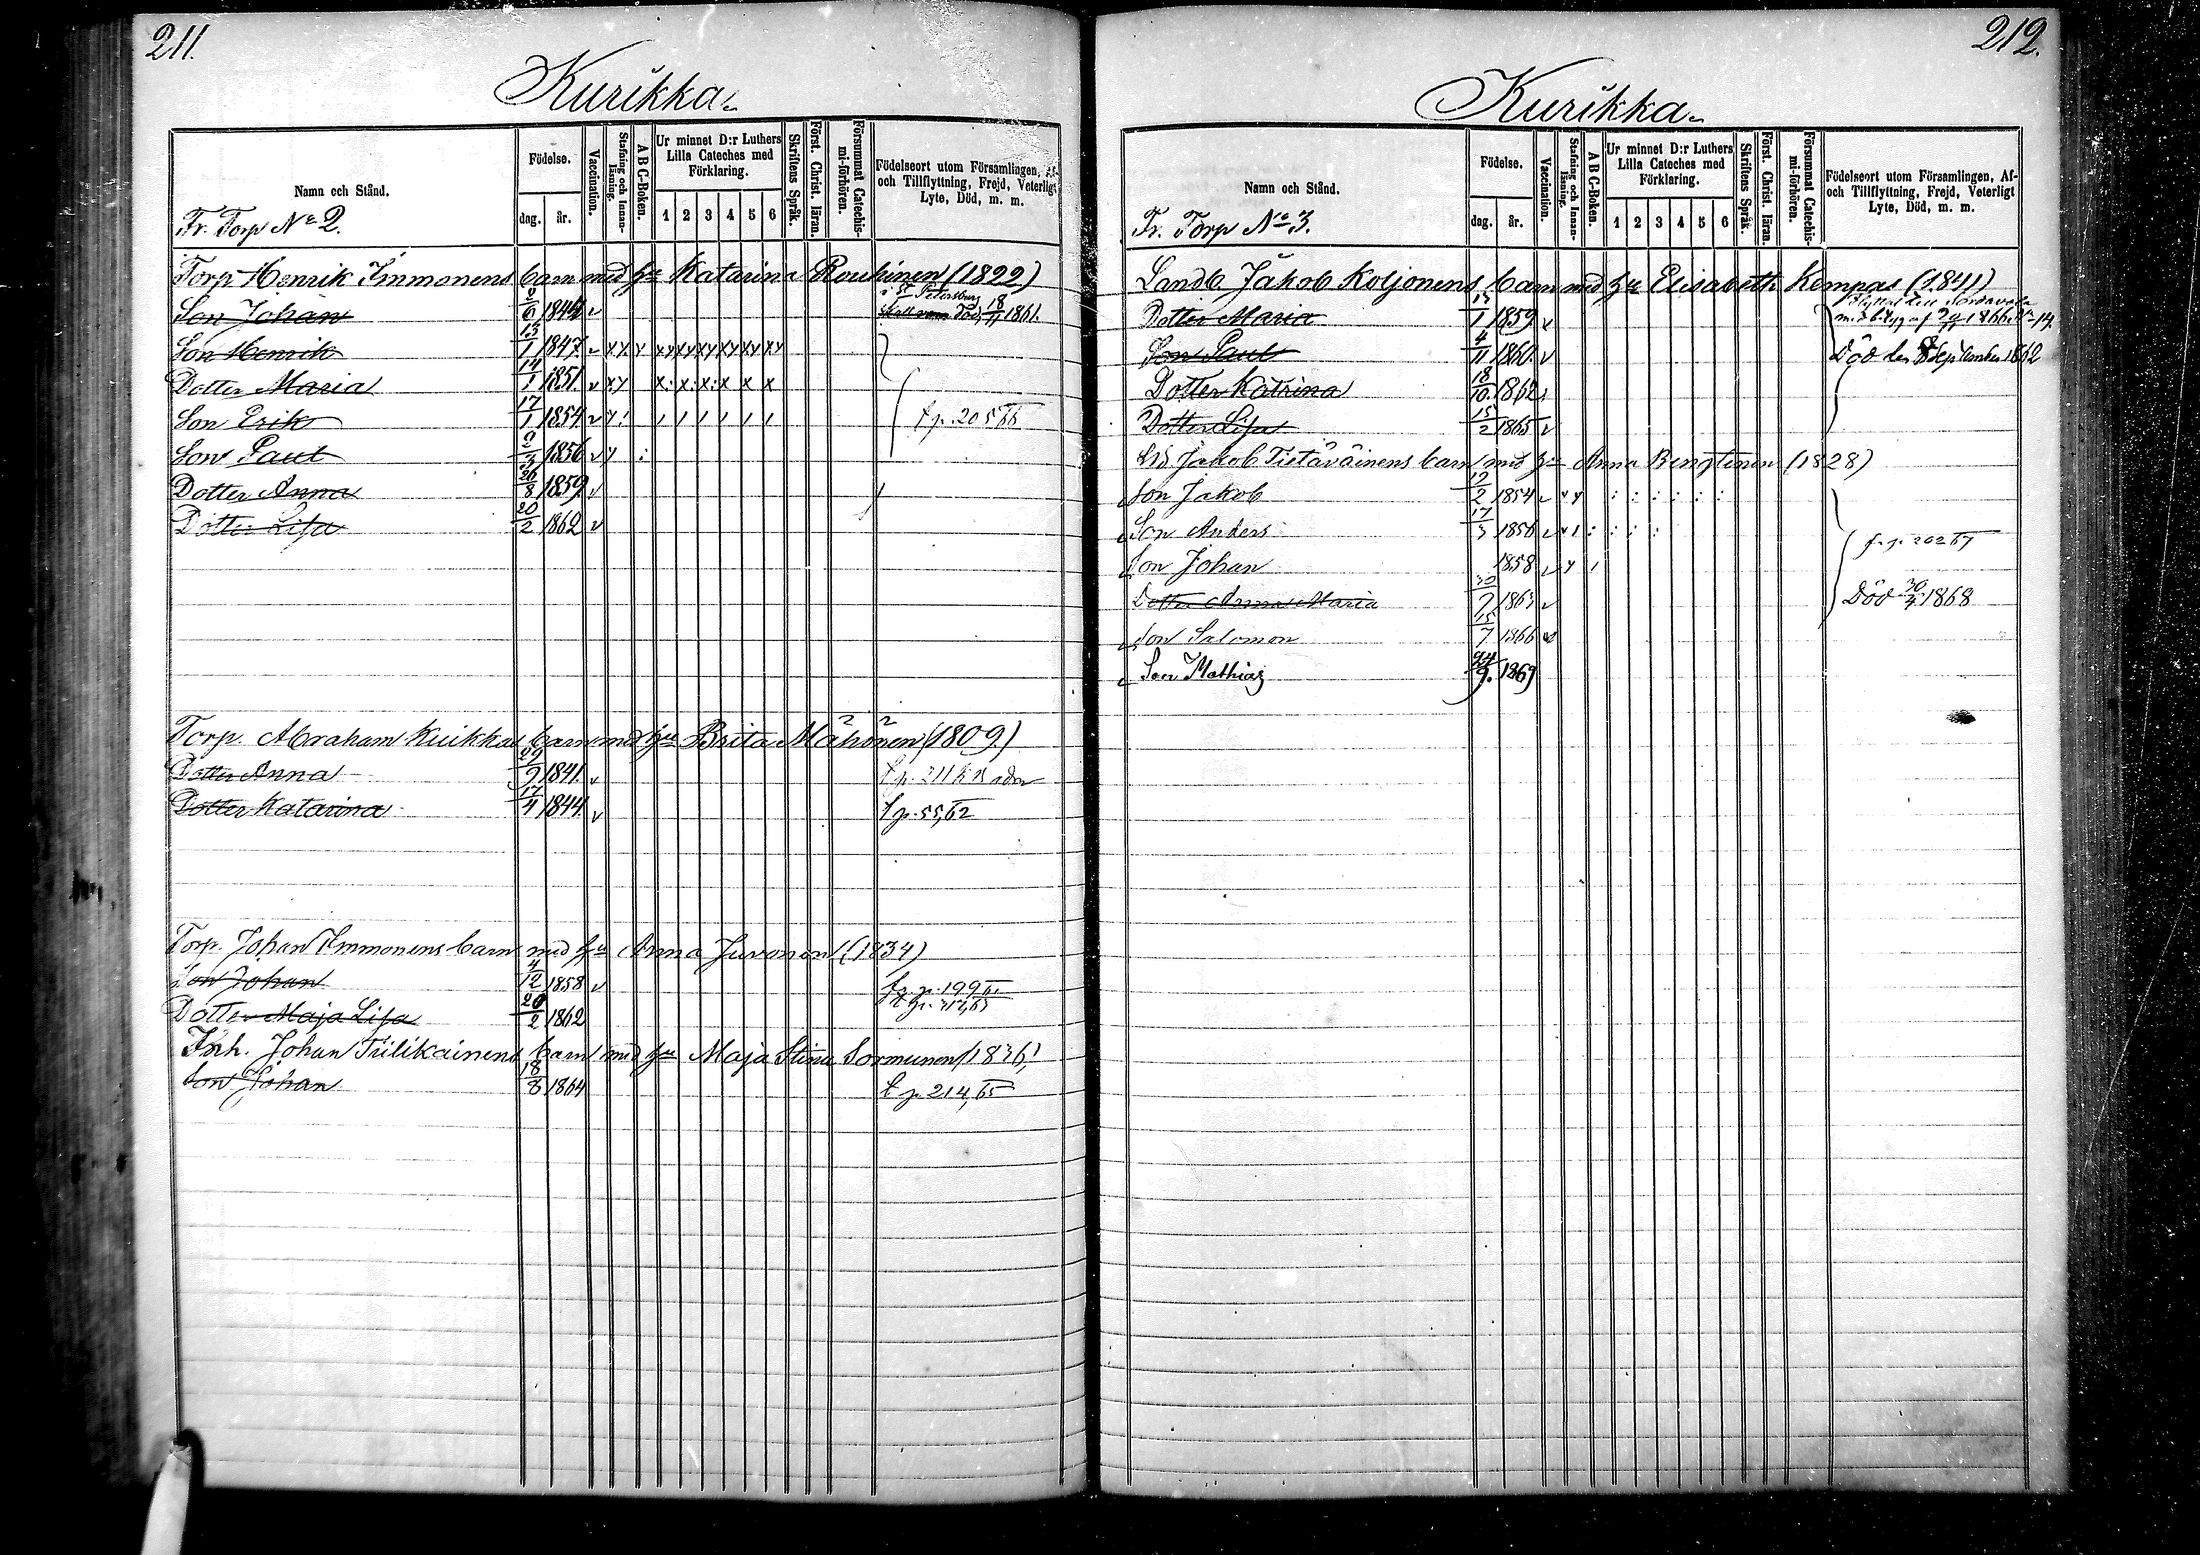 211.
Kurikka.
Namn och Stånd.
Fr. Torp No 2.
Födelse.
dag. år.
Vaccination.
Stafning och Innanläsning.
A B C-Boken.
Ur minnet D:r Luthers Lilla Cateches med Förklaring.
1 2 3 4 5 6
Skriftens Språk.
Först. Christ. läran.
Försummat Catechismi-förhören.
Födelseort utom Församlingen, Af- och Tillflyttning, Frejd, Veterligt Lyte, Död, m. m.
Torp Henrik Immonens barn med hu Katarina (1822)
Son Johan 2/6 1844 v i St Petersburg död 18/11 1861.
Son Henrik 15/1 1847
Dotter Maria 14/1 1851
Son Erik 17/1 1854
Son Paul 2/3 1856
Dotter Anna 26/8 1859 v
Dotter Lisa 20/2 1862 v
Torp. Abraham Kuikkas barn med hu Brita Mähönen (1809)
Dotter Anna 29/9 1841. v
Dotter Katarina 17/4 1844. v t p. 55, 62
Torp. Johan Immonens barn med hu Anna Juvonen (1834)
Son Johan 4/12 1858 v
Dotter Maja Lisa 20/2 1862
Inh. Johan Tiilikainens barn med hu Maja Stina Sormunen (1836)
Son Johan 18/8 1864 t p. 214, 65
212.
Kurikka.
Namn och Stånd.
Fr. Torp No 3.
Födelse.
dag. år.
Vaccination.
Stafning och Innanläsning.
A B C-Boken.
Ur minnet D:r Luthers Lilla Cateches med Förklaring.
1 2 3 4 5 6
Skriftens Språk.
Först. Christ. läran.
Försummat Catechismi-förhören.
Födelseort utom Församlingen, Af- och Tillflyttning, Frejd, Veterligt Lyte, Död, m. m.
Landb. Jakob Koljonens barn med hu Elisabeth Kempas (1841)
Dotter Maria 1859 v
Son Paul 4/11 1860 v Död den 8 September 1862
Dotter Katrina 18/10 1862
Dotter Lisa 15/2 1865 v
Jakob Tietäväinens barn med hu Anna Bengtinen (1828)
Son Jakob 12/2 1854
Son Anders 17/3 1856
Son Johan 1858
Dotter Anna Maria 1863 v Död 30/4 1868
Son Salomon 15/7 1866 v
Son Mathias 24/9. 1869